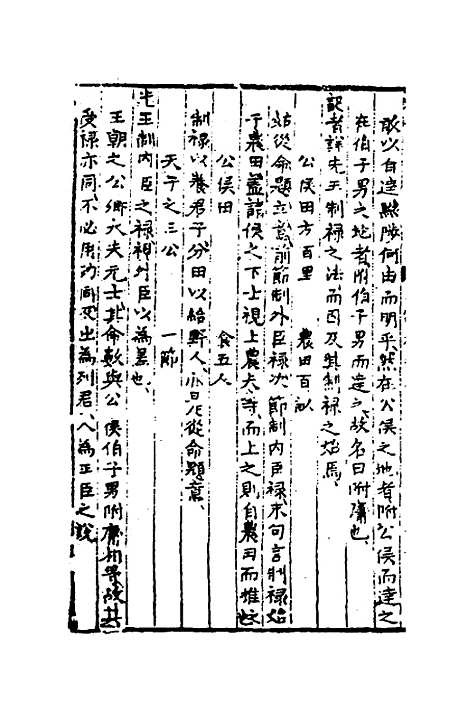 敢以自達黜陟何由而明乎然在公侯之地者附公侯而達之
在伯子男之地者附伯子男而達之故名曰附庸也
記者詳先王制祿之法而因及其制祿之始焉
公侯田方百里 農田百畝
此從命題立意前節制外臣祿次節制內臣祿末句言制祿始
于農田蓋諸侯之下士視上農夫等而上之則自農田而推
公侯田 食五人
制祿以養君子分田以給野人亦從命題意
天子之三公 一節
先王制內臣之祿視外臣以為差也
王朝之公卿大夫元士其命數與公侯伯子男附庸同等故其
受祿亦同不必用功同出為列君入為王臣之說